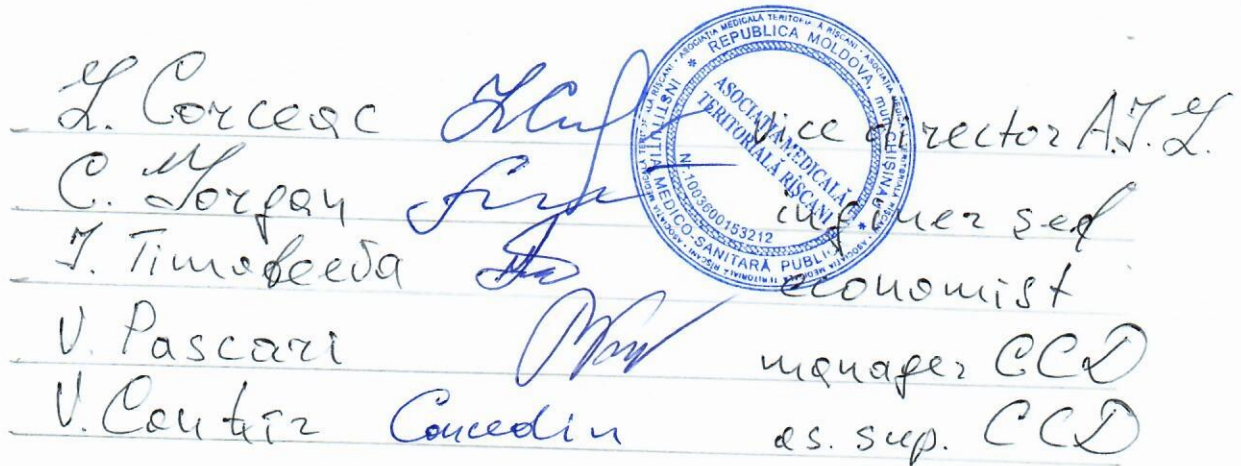 L. Corceac vice director A.T.L.
C. Iorgan inginer șef
T. Timofeeva economist
V. Pascari manager CCD
V. Canțîr Concediu as. sup. CCD
REPUBLICA MOLDOVA, mun. CHIȘINĂU
INSTITUȚIA MEDICO-SANITARĂ PUBLICĂ
ASOCIAȚIA MEDICALĂ
TERITORIALĂ RÎȘCANI
Nr.1003600153212